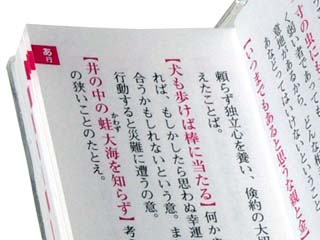 寸の虫にも
く弱い者であっても、どんな
意地があるから、
あなどってはいけないという
【いつまでもあると思うな親と金】
頼らず独立心を養い、倹約の大
えたことば。
【犬も歩けば棒に当たる】何か
れば、もしかしたら思わぬ幸運
合うかもしれないという意。ま
行動すると災難に遭うの意。
かわず
【井の中の蛙大海を知らず】考
の狭いことのたとえ。
あ行